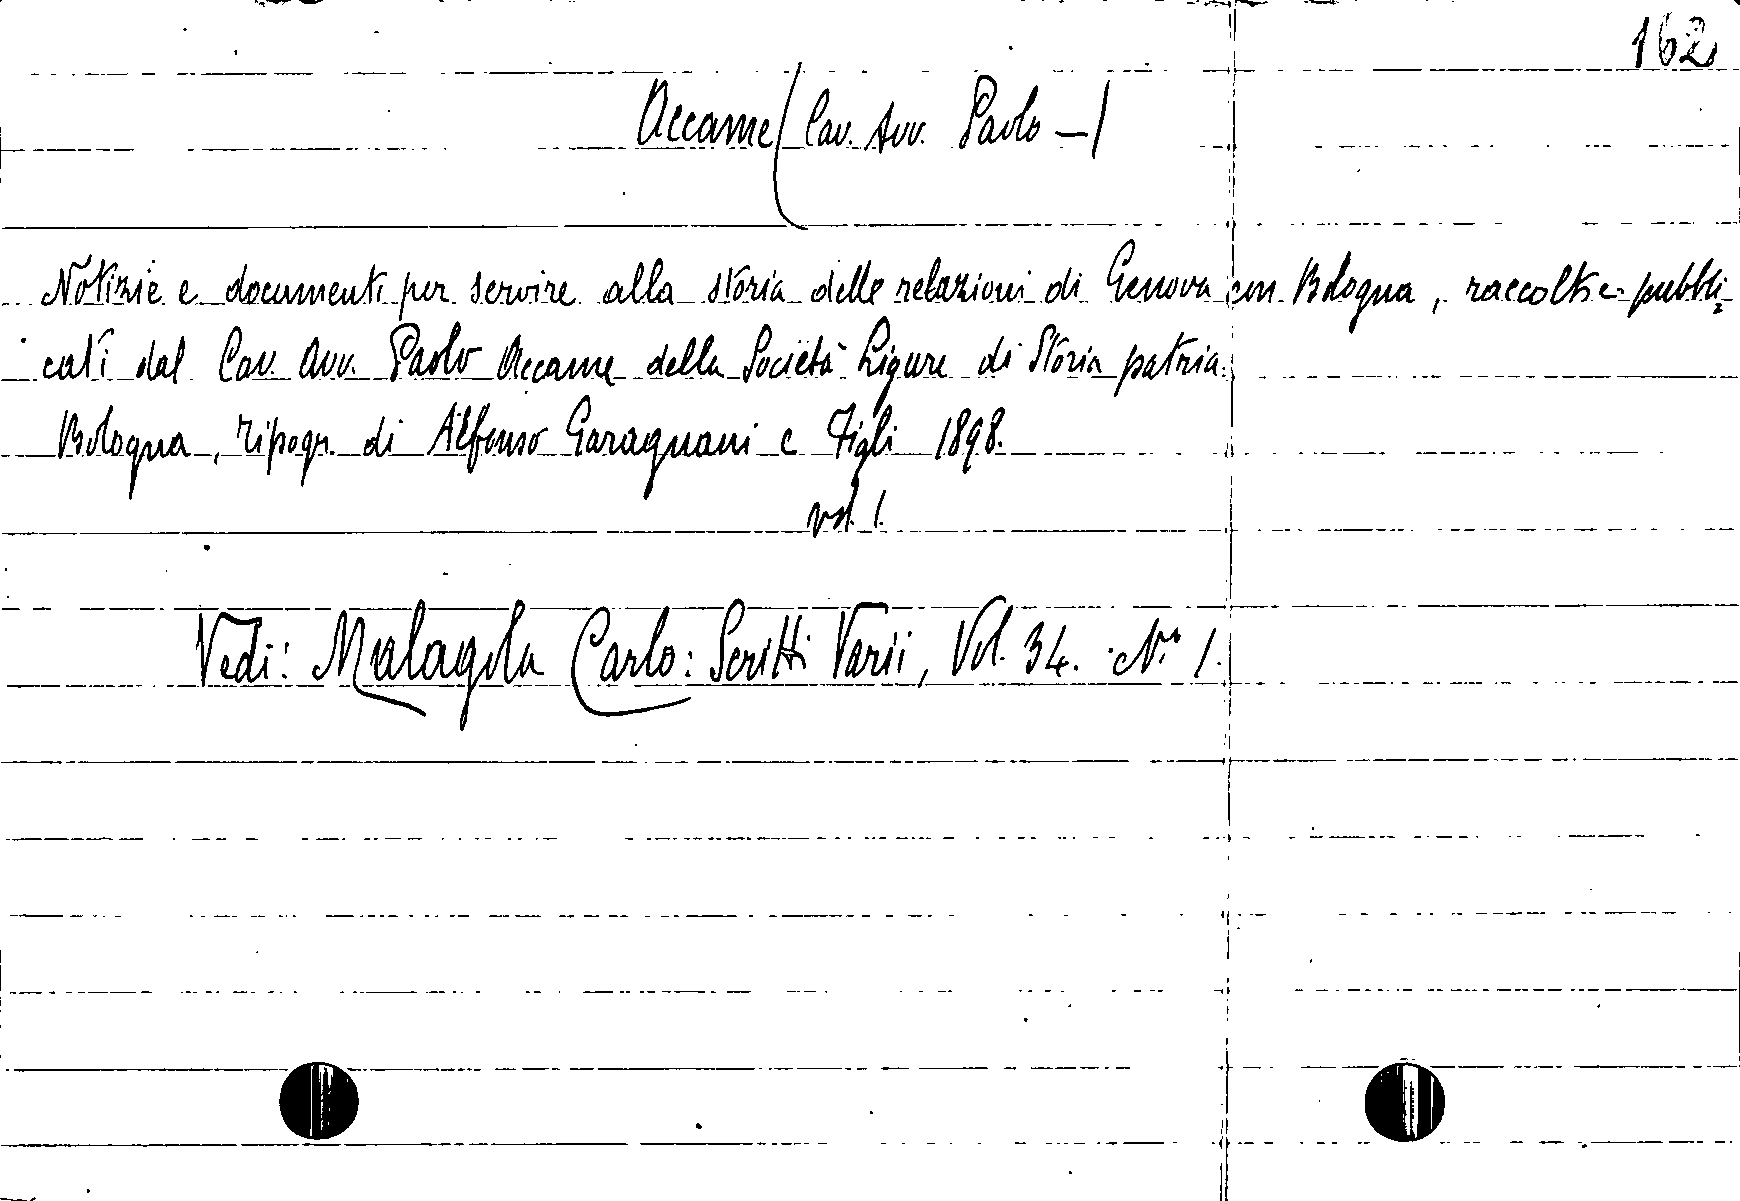 162
Accame (Cav. Avv. Paolo —)
Notizie e documenti per servire alla storia delle relazioni di Genova con Bologna, raccolti e pubbli=
cati dal Cav. Avv. Paolo Accame della Società Ligure di Storia patria.
Bologna, Tipogr. di Alfonso Garagnani e Figli 1898.
vol. 1.
Vedi: Malagola Carlo: Scritti Varii, Vol. 34. N.º 1.